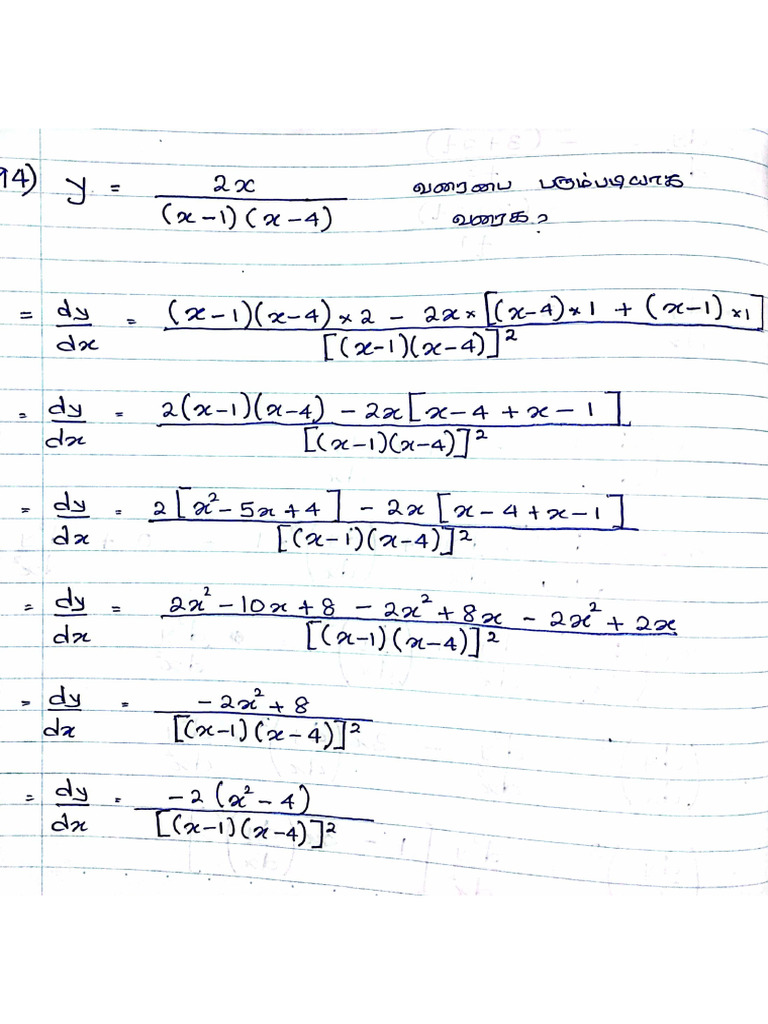 94) y = 2x / (x-1)(x-4) வரைபை பரும்படியாக
வரைக?
= dy/dx = (x-1)(x-4)×2 - 2x×[(x-4)×1 + (x-1)×1] / [(x-1)(x-4)]²
= dy/dx = 2(x-1)(x-4) - 2x[x-4+x-1] / [(x-1)(x-4)]²
= dy/dx = 2[x²-5x+4] - 2x[x-4+x-1] / [(x-1)(x-4)]²
= dy/dx = 2x²-10x+8-2x²+8x-2x²+2x / [(x-1)(x-4)]²
= dy/dx = -2x²+8 / [(x-1)(x-4)]²
= dy/dx = -2(x²-4) / [(x-1)(x-4)]²